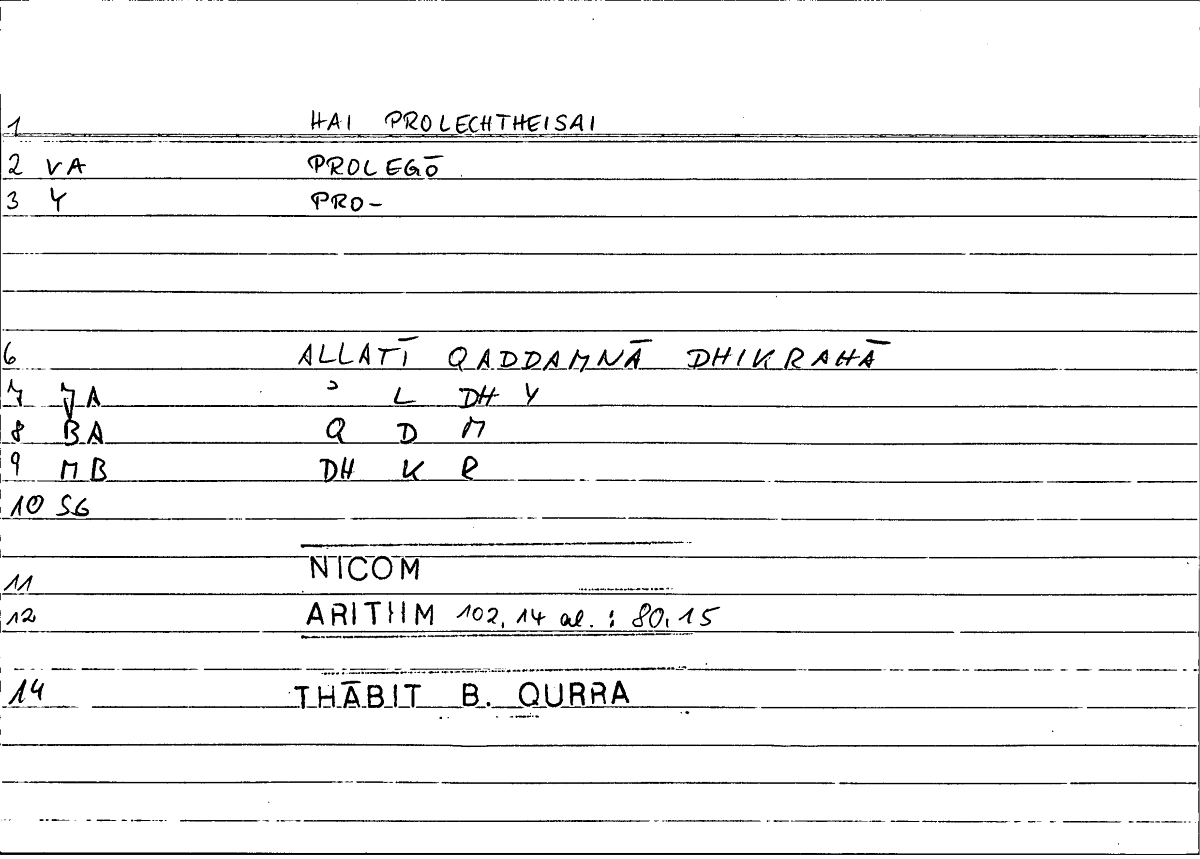 1 HAI PROLECHTHEISAI
2 VA PROLEGŌ
3 Y PRO-
6 ALLATĪ QADDAMNĀ DHIKRAHĀ
7 JA ʾ L DH Y
8 BA Q D M
9 MB DH K R
10 SG
11 NICOM
12 ARITHM 102,14 al. : 80,15
14 THĀBIT B. QURRA